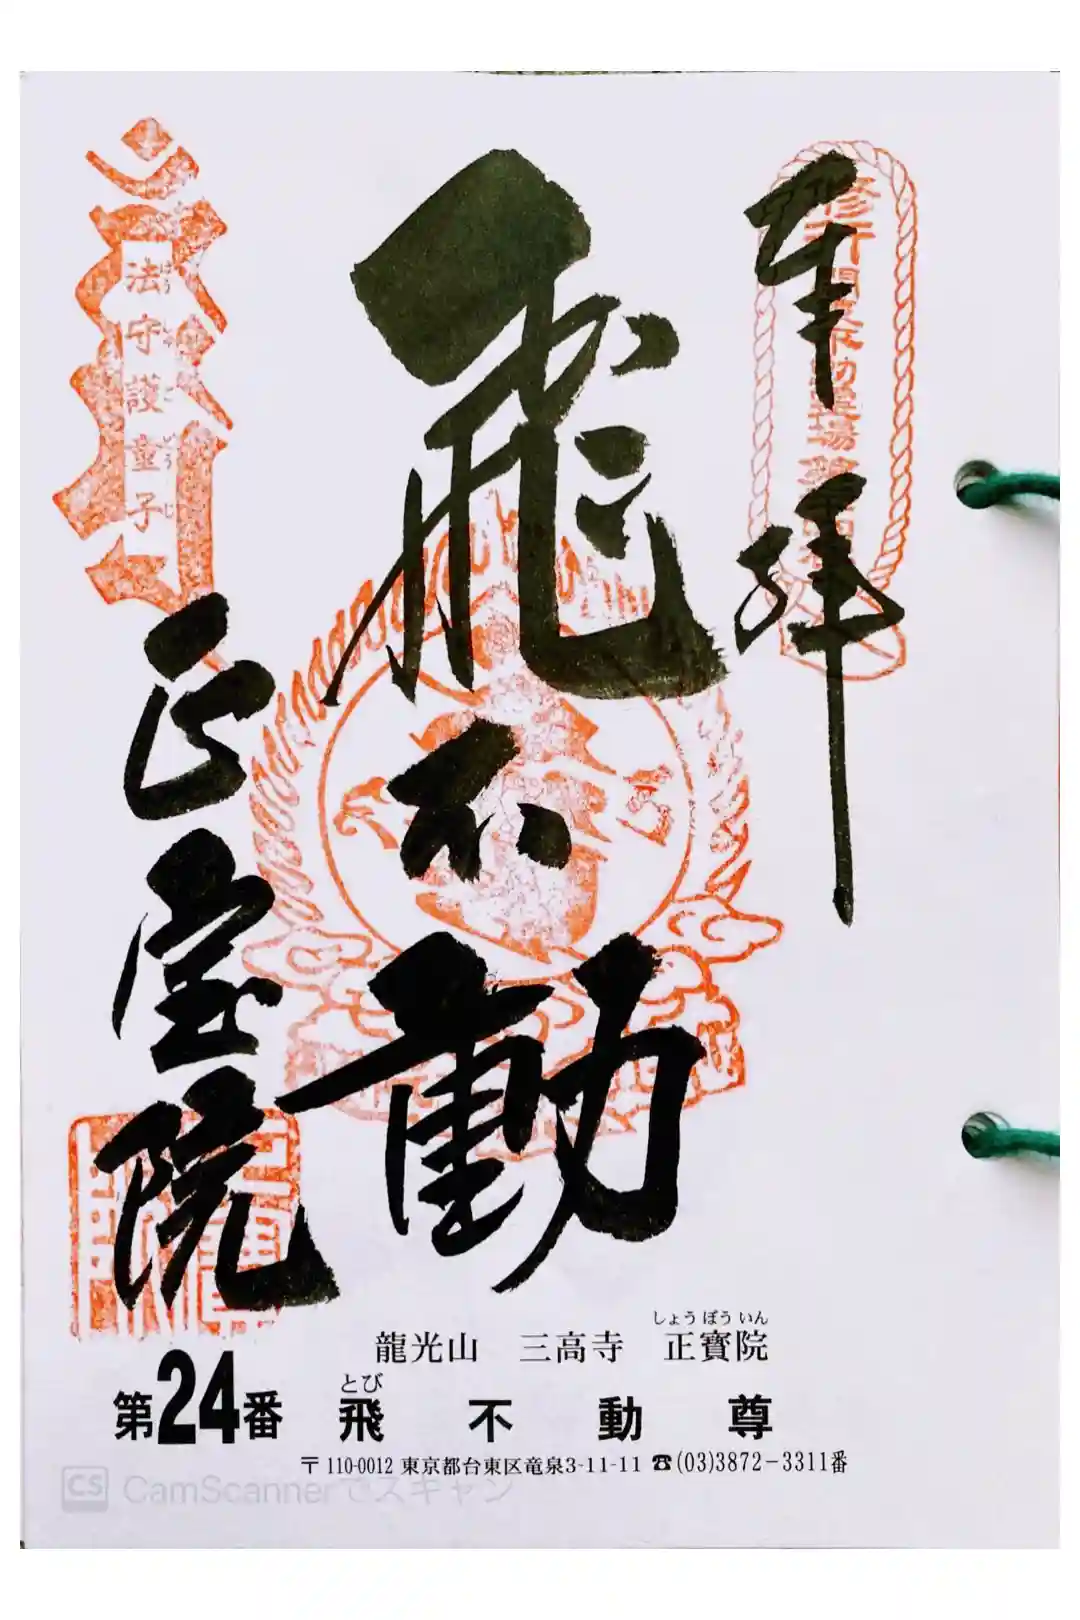 奉拝
飛不動
正宝院
法守護童子
ほうしゅごどうじ
しょうぼういん
龍光山 三高寺 正寳院
とび
第24番 飛不動尊
〒110-0012 東京都台東区竜泉3-11-11 ☎(03)3872-3311番
CS CamScannerでスキャン